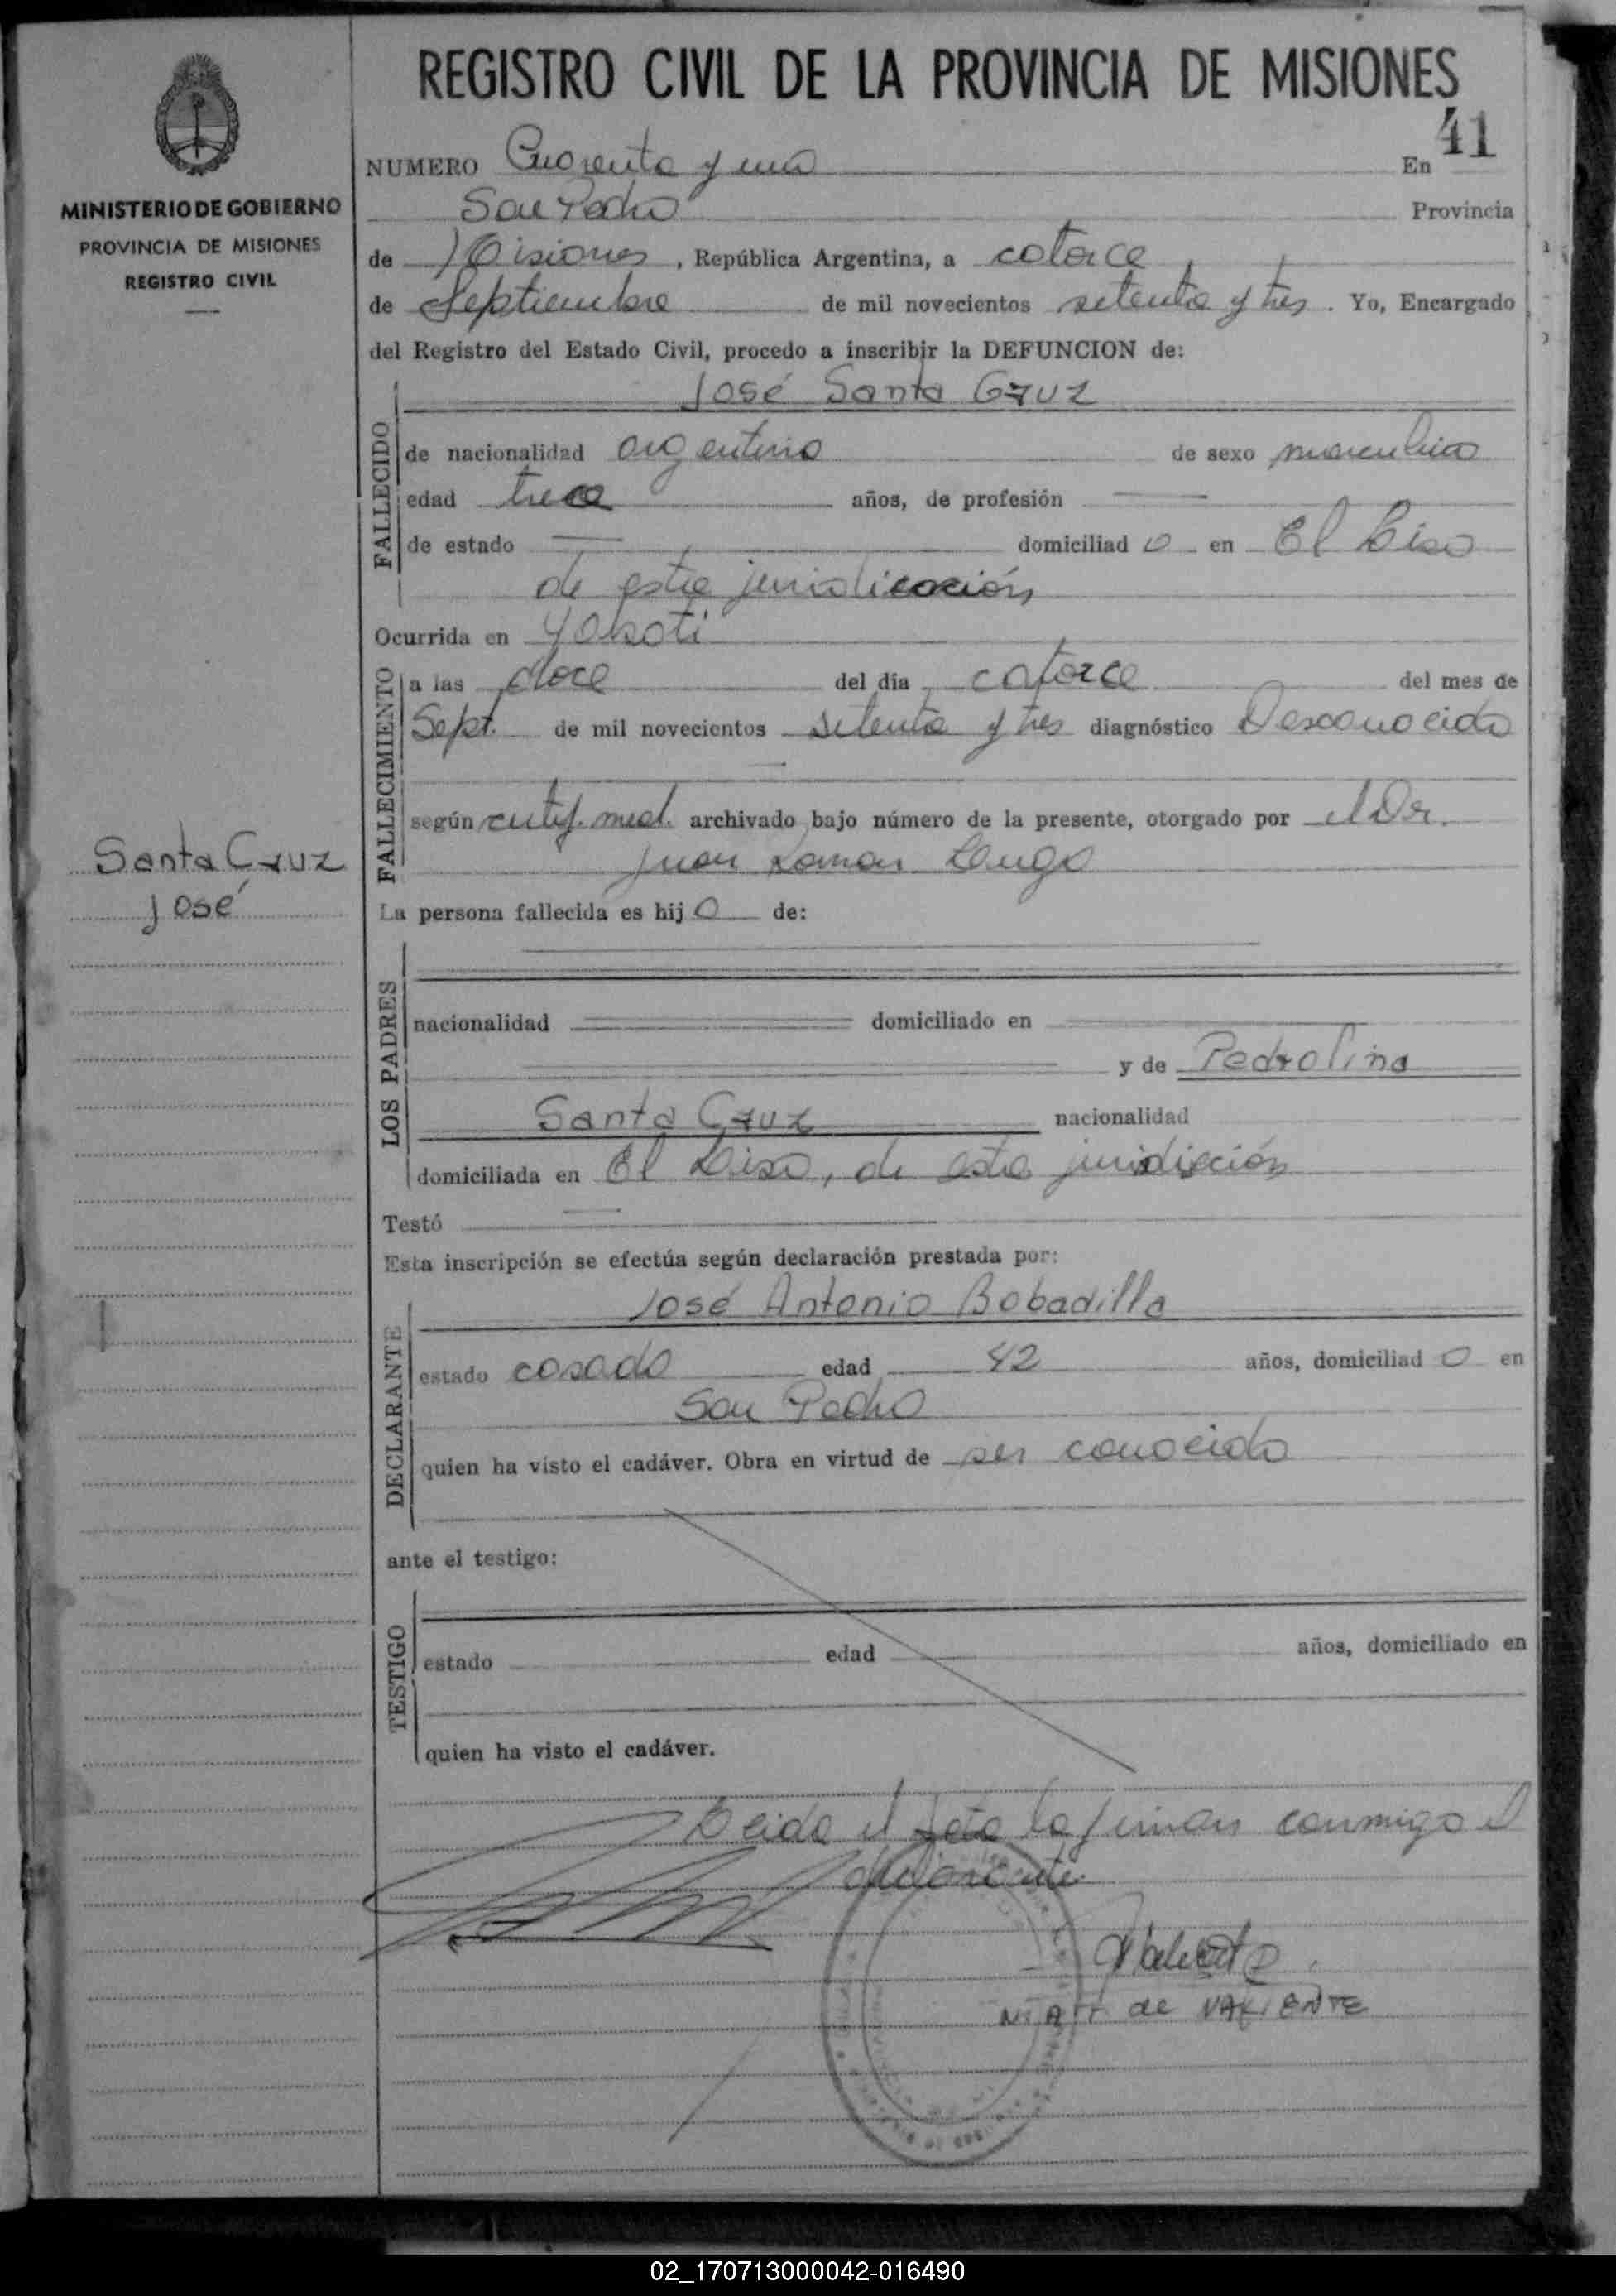 MINISTERIO DE GOBIERNO
PROVINCIA DE MISIONES
REGISTRO CIVIL
Santa Cruz
José
REGISTRO CIVIL DE LA PROVINCIA DE MISIONES
41
NUMERO Cuarenta y uno En
San Pedro Provincia
de Misiones, República Argentina, a catorce
de Septiembre de mil novecientos setenta y tres. Yo, Encargado
del Registro del Estado Civil, procedo a inscribir la DEFUNCION de:
José Santa Cruz
FALLECIDO
de nacionalidad argentino de sexo masculino
edad trece años, de profesión
de estado domiciliado en El Liso
de esta jurisdicción
Ocurrida en Yaboti
FALLECIMIENTO
a las doce del día catorce del mes de
Sept. de mil novecientos setenta y tres diagnóstico Desconocido
según certif. med. archivado bajo número de la presente, otorgado por el Dr.
Juan Roman Longo
La persona fallecida es hijo de:
LOS PADRES
nacionalidad domiciliado en
y de Pedrolina
Santa Cruz nacionalidad
domiciliada en El Liso, de esta jurisdicción
Testó
Esta inscripción se efectúa según declaración prestada por:
José Antonio Bobadilla
DECLARANTE
estado casado edad 42 años, domiciliado en
San Pedro
quien ha visto el cadáver. Obra en virtud de ser conocido
ante el testigo:
TESTIGO
estado edad años, domiciliado en
quien ha visto el cadáver.
Leida el acta la firman conmigo el
declarante.
de VALIENTE
02_170713000042-016490